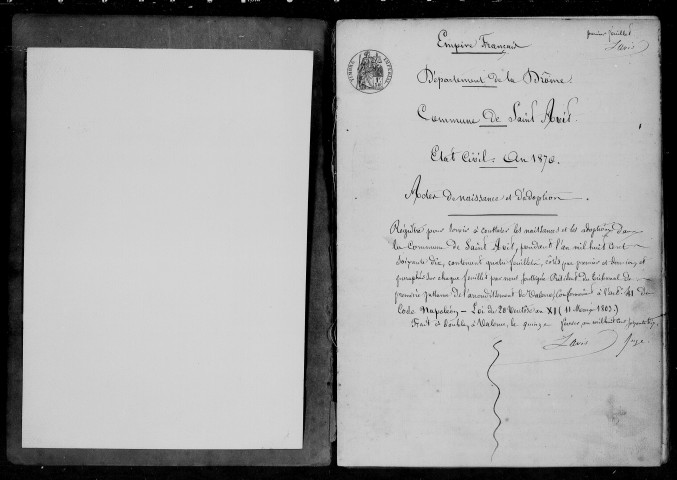 premier feuillet
Empire Français
Département de la Drôme
Commune de Saint Avit.
Etat Civil = An 1870.
Actes de naissance et d'adoption.
Régistre pour servir à constater les naissances et les adoptions dans
la Commune de Saint Avit, pendant l'an mil huit cent
soixante dix, contenant quatre feuillets, cotés par premier et dernier, et
paraphés sur chaque feuillet par nous soussigné Président du tribunal de
première Instance de l'arrondissement de Valence, Conformément à l'art. 41 du
Code Napoléon - Loi du 20 Ventôse an XI (11 Mars 1803.)
Fait à Valence, le quinze mil huit cent soixante